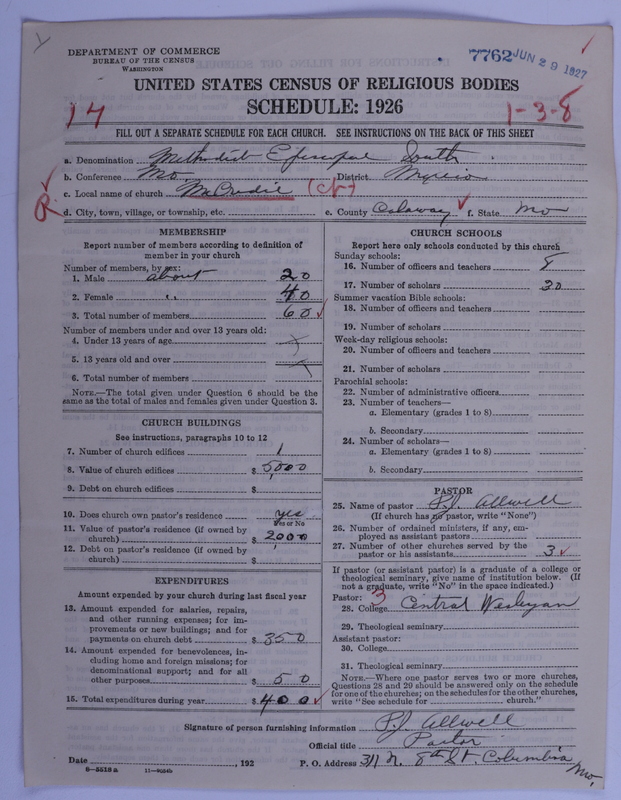 DEPARTMENT OF COMMERCE
BUREAU OF THE CENSUS
WASHINGTON
7762 JUN 29 1927
UNITED STATES CENSUS OF RELIGIOUS BODIES
SCHEDULE: 1926
14
1-3-8
FILL OUT A SEPARATE SCHEDULE FOR EACH CHURCH. SEE INSTRUCTIONS ON THE BACK OF THIS SHEET
a. Denomination Methodist Episcopal South
b. Conference Mo. District Mexico
c. Local name of church McCredie
R
d. City, town, village, or township, etc. e. County Callaway f. State Mo
MEMBERSHIP
Report number of members according to definition of
member in your church
Number of members, by sex:
1. Male about 20
2. Female " 40
3. Total number of members 60
Number of members under and over 13 years old:
4. Under 13 years of age
5. 13 years old and over
6. Total number of members
NOTE.—The total given under Question 6 should be the
same as the total of males and females given under Question 3.
CHURCH BUILDINGS
See instructions, paragraphs 10 to 12
7. Number of church edifices 1
8. Value of church edifices $ 5,000
9. Debt on church edifices $
10. Does church own pastor's residence yes
Yes or No
11. Value of pastor's residence (if owned by
church) $ 2000
12. Debt on pastor's residence (if owned by
church) $
EXPENDITURES
Amount expended by your church during last fiscal year
13. Amount expended for salaries, repairs,
and other running expenses; for im-
provements or new buildings; and for
payments on church debt $ 350
14. Amount expended for benevolences, in-
cluding home and foreign missions; for
denominational support; and for all
other purposes $ 50
15. Total expenditures during year $ 400
CHURCH SCHOOLS
Report here only schools conducted by this church
Sunday schools:
16. Number of officers and teachers 8
17. Number of scholars 30
Summer vacation Bible schools:
18. Number of officers and teachers
19. Number of scholars
Week-day religious schools:
20. Number of officers and teachers
21. Number of scholars
Parochial schools:
22. Number of administrative officers
23. Number of teachers—
a. Elementary (grades 1 to 8)
b. Secondary
24. Number of scholars—
a. Elementary (grades 1 to 8)
b. Secondary
PASTOR
25. Name of pastor P.J. Allwell
(If church has no pastor, write "None")
26. Number of ordained ministers, if any, em-
ployed as assistant pastors
27. Number of other churches served by the
pastor or his assistants 3
If pastor (or assistant pastor) is a graduate of a college or
theological seminary, give name of institution below. (If
not a graduate, write "No" in the space indicated.)
Pastor: 3
28. College Central Wesleyan
29. Theological seminary
Assistant pastor:
30. College
31. Theological seminary
NOTE.—Where one pastor serves two or more churches,
Questions 28 and 29 should be answered only on the schedule
for one of the churches; on the schedules for the other churches,
write "See schedule for church."
Signature of person furnishing information P.J. Allwell
Official title Pastor
Date , 192 P. O. Address 311 N. 8th St. Columbia Mo,
8—5518a 11—9054b